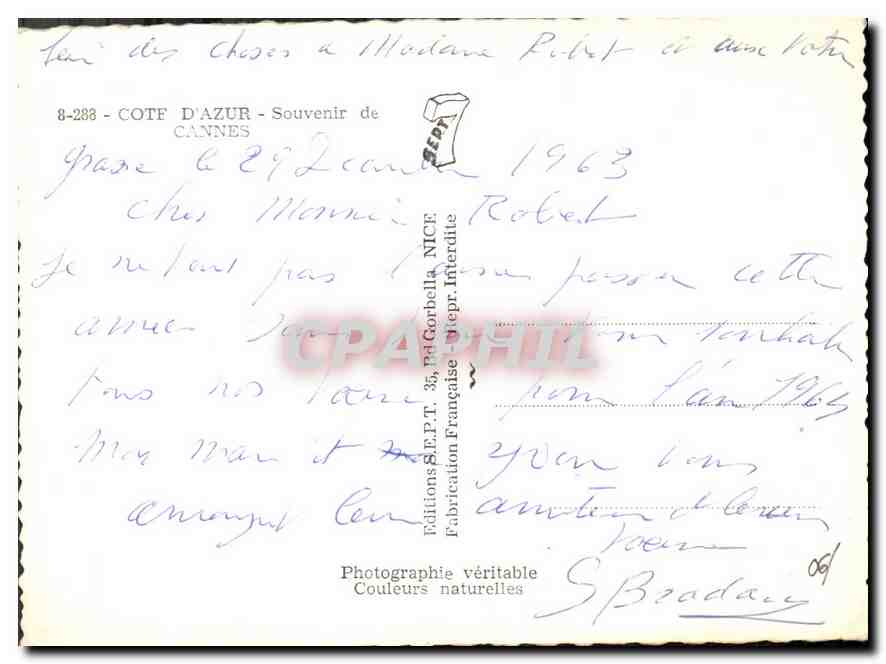 des choses a Madame Robert et aussi Votre
8-288 - COTE D'AZUR - Souvenir de
CANNES
SEPT
Grasse le 29 1963
Cher Monsieur Robert
Je ne veut pas laisser passer cette
année sans vous souhaiter
tous nos voeux pour l'an 1964
Mon mari et Yvon vous
envoyent leur
voeux
S Bradai
06/
Editions S.E.P.T. 35, Bd Gorbella NICE
Fabrication Française - Repr. Interdite
CPAPHIL
Photographie véritable
Couleurs naturelles